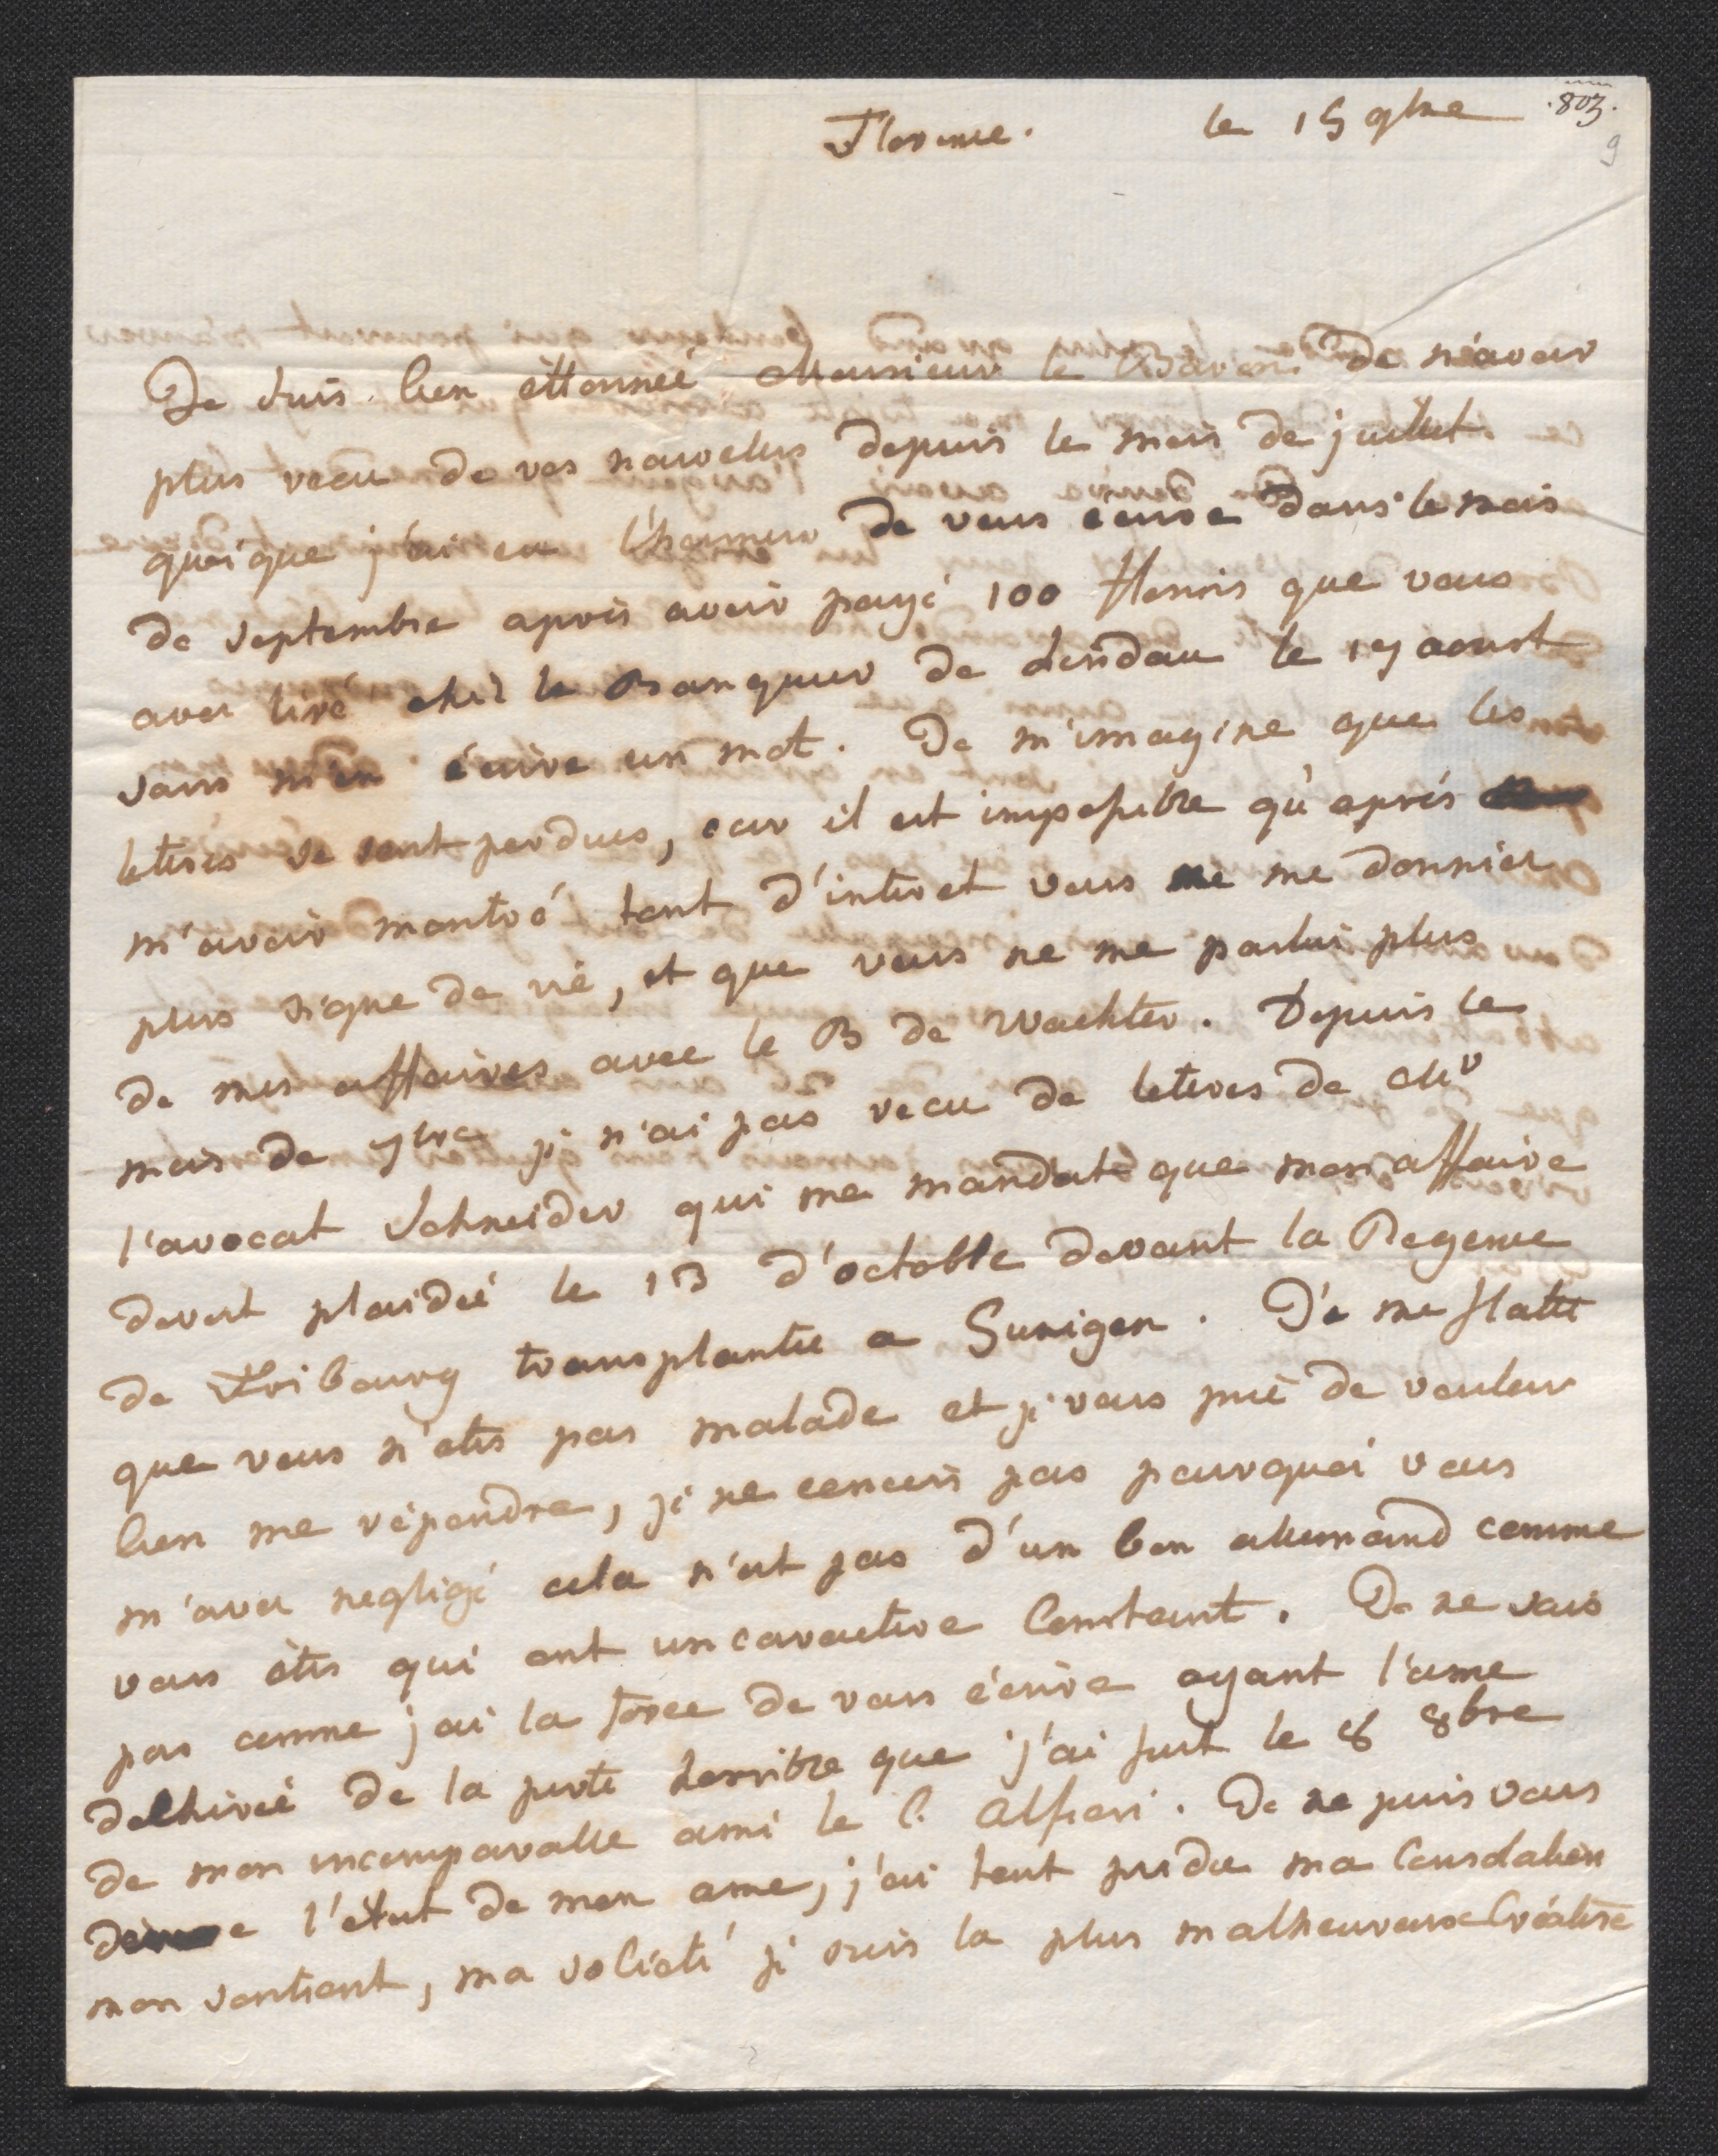 Florence. le 15 9bre .803.
9
Je suis bien éttonneé Monsieur le Baron de n'avoir
plus recu de vos nouvelles depuis le mois de juillet
quoique j'ai eu l'honneur de vous écrire dans le mois
de septembre aprés avoir payé 100 florins que vous
avez tiré chez le Banquier de Lindau le 17 aoust
sans m'en écrire un mot. Je m'imagine que les
lettres se sont perdues, car il est impossible qu'aprés
m'avoir montré tant d'interet vous ne me donniez
plus signe de vie, et que vous ne me parlui plus
de mes affaires avec le B de Wachter. Depuis le
mois de 7bre je n'ai pas recu de lettres de Mr
l'avocat Schneider qui me mandate que mon affaire
devoit plaideé le 13 d'octobre devant la Regence
de Fribourg transplantée a Gunigen. Je me flatte
que vous n'etes pas malade et je vous prie de vouloir
bien me répondre, je ne concois pas pourquoi vous
m'avez negligé cela n'est pas d'un bon allemand comme
vous étes qui ont un caractere Constant. Je ne sais
pas comme j'ai la force de vous écrire ayant l'ame
dechireé de la perte horrible que j'ai fait le 8 8bre
de mon incomparable ami le C. Alfieri. Je ne puis vous
dire l'état de mon ame, j'ai tout perdu ma Consolation
mon soutient, ma societé je suis la plus malheureuse Créature